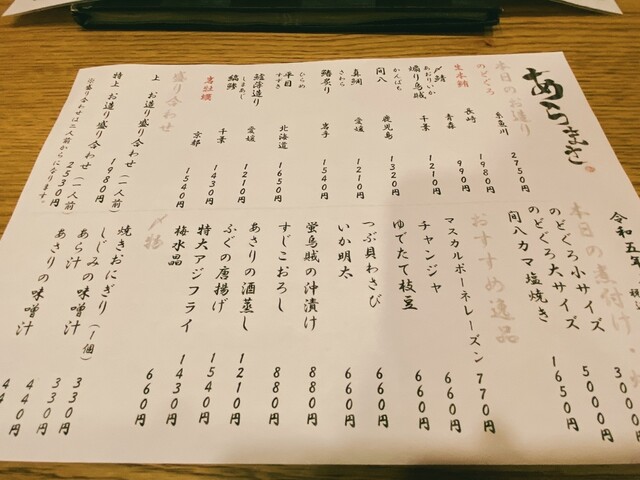 あらまさ
本日のお造り
のどぐろ 糸魚川 2750円
生本鮪 長崎 1980円
〆鯖 青森 990円
あおりいか
煽り烏賊 千葉 1210円
かんぱち
間八 鹿児島 1320円
真鯛 愛媛 1210円
さわら
鰆炙り 岩手 1540円
ひらめ
平目 北海道 1650円
愛媛 1210円
しまあじ
縞鯵 千葉 1430円
岩牡蠣 京都 1540円
盛り合わせ
上 お造り盛り合わせ(一人前) 1980円
特上 お造り盛り合わせ(一人前) 2530円
※盛り合わせは二人前からになります。
令和五年
本日の煮付け・
のどぐろ小サイズ 3000円
のどぐろ大サイズ 5000円
間八カマ塩焼き 1650円
おすすめ逸品
マスカルポーネレーズン 770円
チャンジャ 660円
ゆでたて枝豆 660円
つぶ貝わさび 660円
いか明太 660円
蛍烏賊の沖漬け 880円
すじこおろし 880円
あさりの酒蒸し 1210円
ふぐの唐揚げ 1540円
特大アジフライ 1430円
梅水晶 660円
〆物
焼きおにぎり(1個) 330円
しじみの味噌汁 330円
あら汁 440円
あさりの味噌汁 44